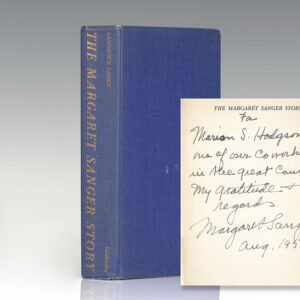 LAWRENCE LADER
THE MARGARET SANGER STORY
Doubleday
THE MARGARET SANGER STORY
To
Marion S. Hodgson
one of our Coworkers
in the great Cau
My gratitude &
regards
Margaret Sang
Aug. 195